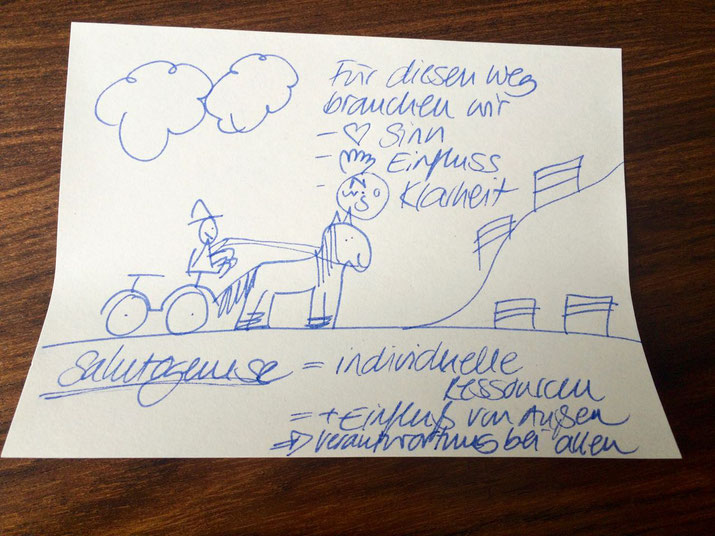 Für diesen Weg
brauchen wir
- ♡ Sinn
- Einfluss
- Klarheit
N
W O
S
Salutogenese = individuelle
Ressourcen
= + Einfluß von Außen
⇒ Verantwortung bei allen